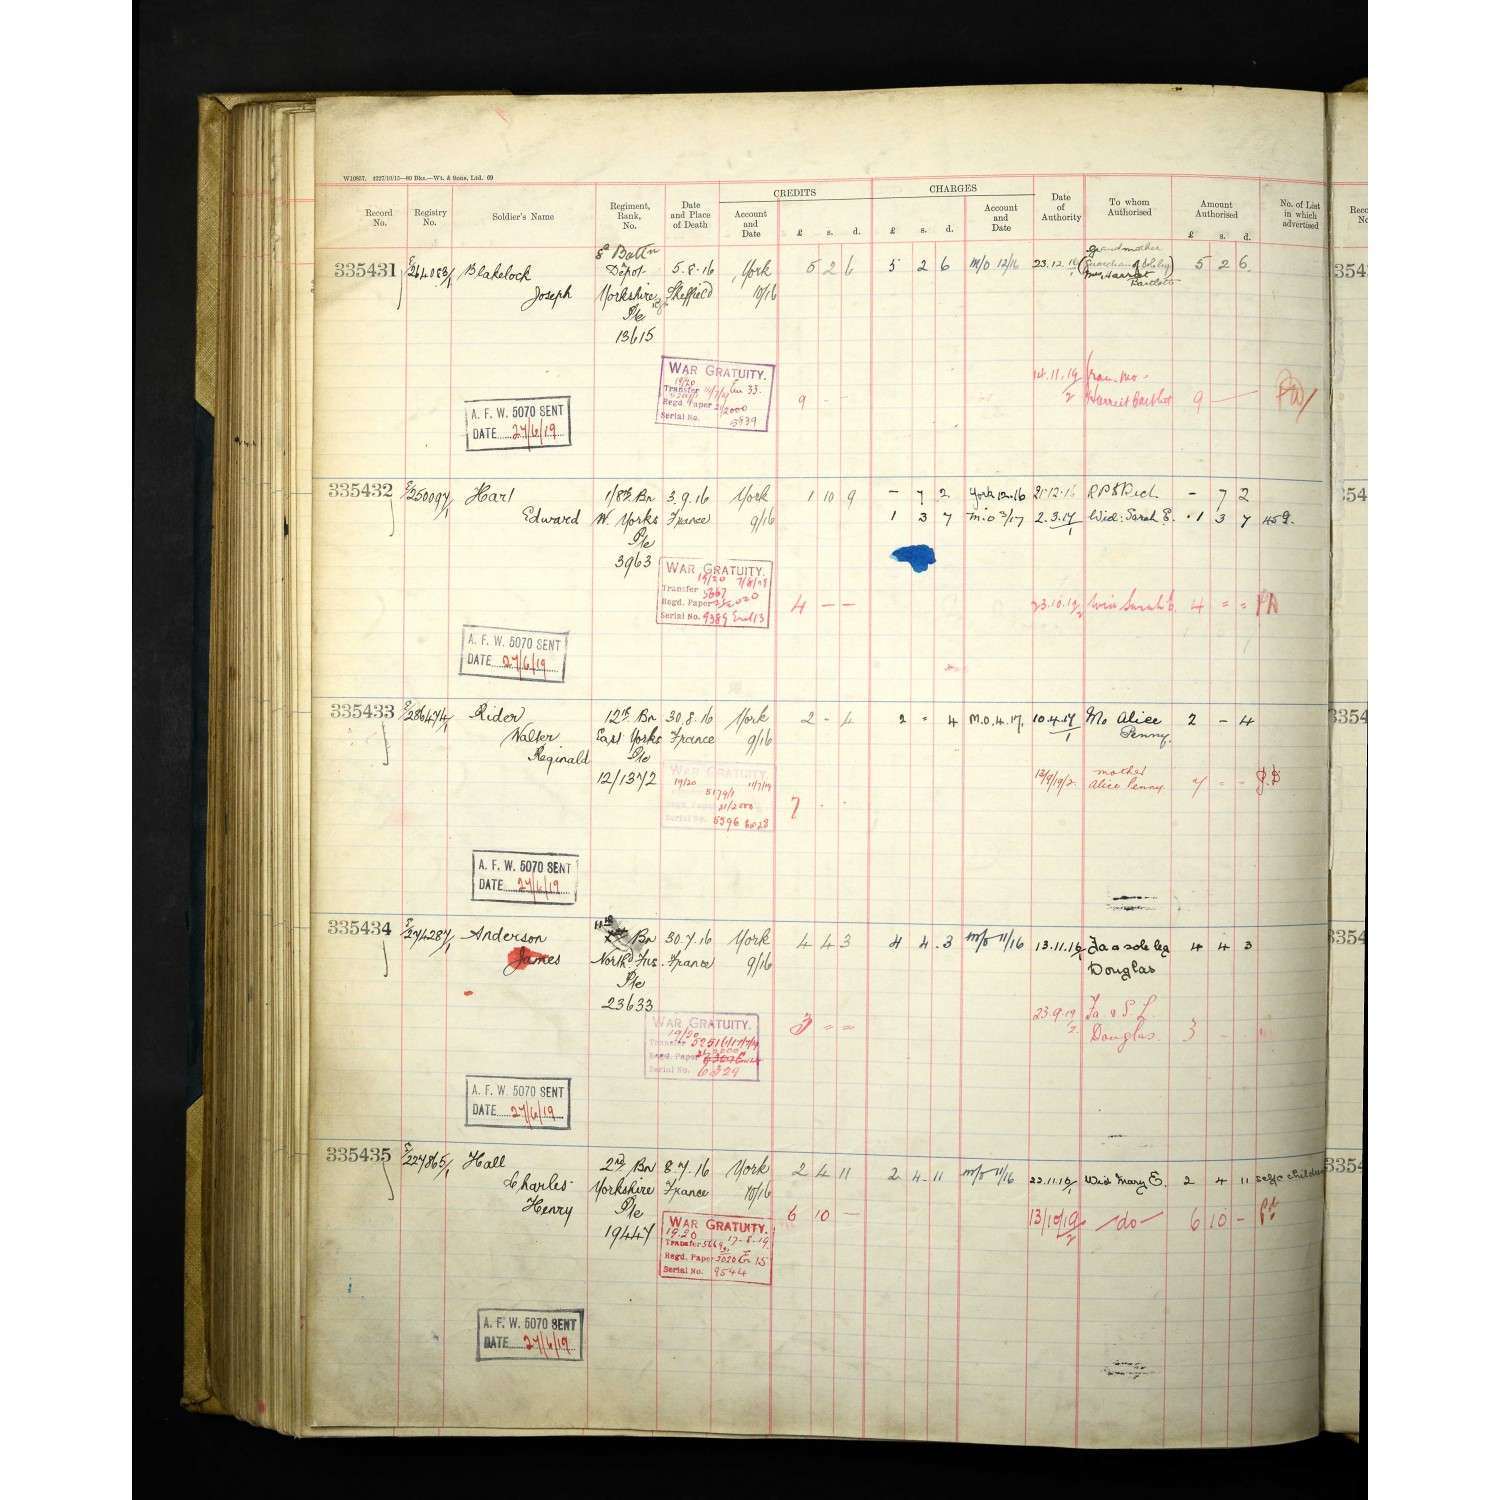 W10857. 4227/10/15—80 Bks.—Wt. & Sons, Ltd. 69
CREDITS CHARGES
Record No. Registry No. Soldier's Name Regiment, Rank, No. Date and Place of Death Account and Date £ s. d. £ s. d. Account and Date Date of Authority To whom Authorised Amount Authorised £ s. d. No. of List in which advertised
8th Battn Grandmother
335431 E/264083/1 Blakelock Depot 5.8.16 York 5 2 6 5 2 6 M/O 12/16 23.12.16/1 5 2 6
Joseph Yorkshire Sheffield 10/16 Mrs Harriet
Pte Bartlett
13615
WAR GRATUITY. 14.11.19/2 Gran. mo-
19/20
Transfer
Regd. Paper 21/2000 9 - - Harriet Bartlett 9
Serial No. 5839
A. F. W. 5070 SENT
DATE 27/6/19
335432 E/250097/1 Hart 1/8th Bn 3.9.16 York 1 10 9 - 7 2 York 12.16 21.12.16 - 7 2
Edward W. Yorks France 9/16 1 3 7 M.O 3/17 2.3.17/1 Wid: Sarah E. 1 3 7
Pte
3963
WAR GRATUITY.
19/20 7/8/19
Transfer 5667
Regd. Paper 4 - - 23.10.19/2 Wid Sarah E. 4 = =
Serial No. 9389
A. F. W. 5070 SENT
DATE 27/6/19
335433 E/286474/1 Rider 12th Bn 30.8.16 York 2 - 4 2 - 4 M.O.4.17. 10.4.17/1 Mo Alice 2 - 4
Walter East Yorks France 9/16 Penny.
Reginald Pte
12/1372
WAR GRATUITY 13/9/19/2 mother
19/20 11/7/19 Alice Penny. 7 - -
5179/1
Regd. Paper 21/2000 7 . .
Serial No. 5596
A. F. W. 5070 SENT
DATE 27/6/19
335434 E/274287/1 Anderson Bn 30.7.16 York 4 4 3 4 4 3 M/O 11/16 13.11.16/1 Fa & sole leg 4 4 3
James North'd Fus. France 9/16 Douglas
Pte
23633
WAR GRATUITY. 3 = = 23.9.19/2 Fa. & S. L.
19/20
Transfer Douglas. 3 - -
Regd. Paper
Serial No. 6329
A. F. W. 5070 SENT
DATE 27/6/19
335435 E/227865/1 Hall 2nd Bn 8.7.16 York 2 4 11 2 4 11 M/O 11/16 22.11.16/1 Wid Mary E. 2 4 11 self & children
Charles Yorkshire France 10/16
Henry Pte 6 10 - 13/10/19/2 -do- 6 10 -
19447
WAR GRATUITY.
19.20 17-8-19
Transfer
Regd. Paper
Serial No. 9544
A. F. W. 5070 SENT
DATE 27/6/19